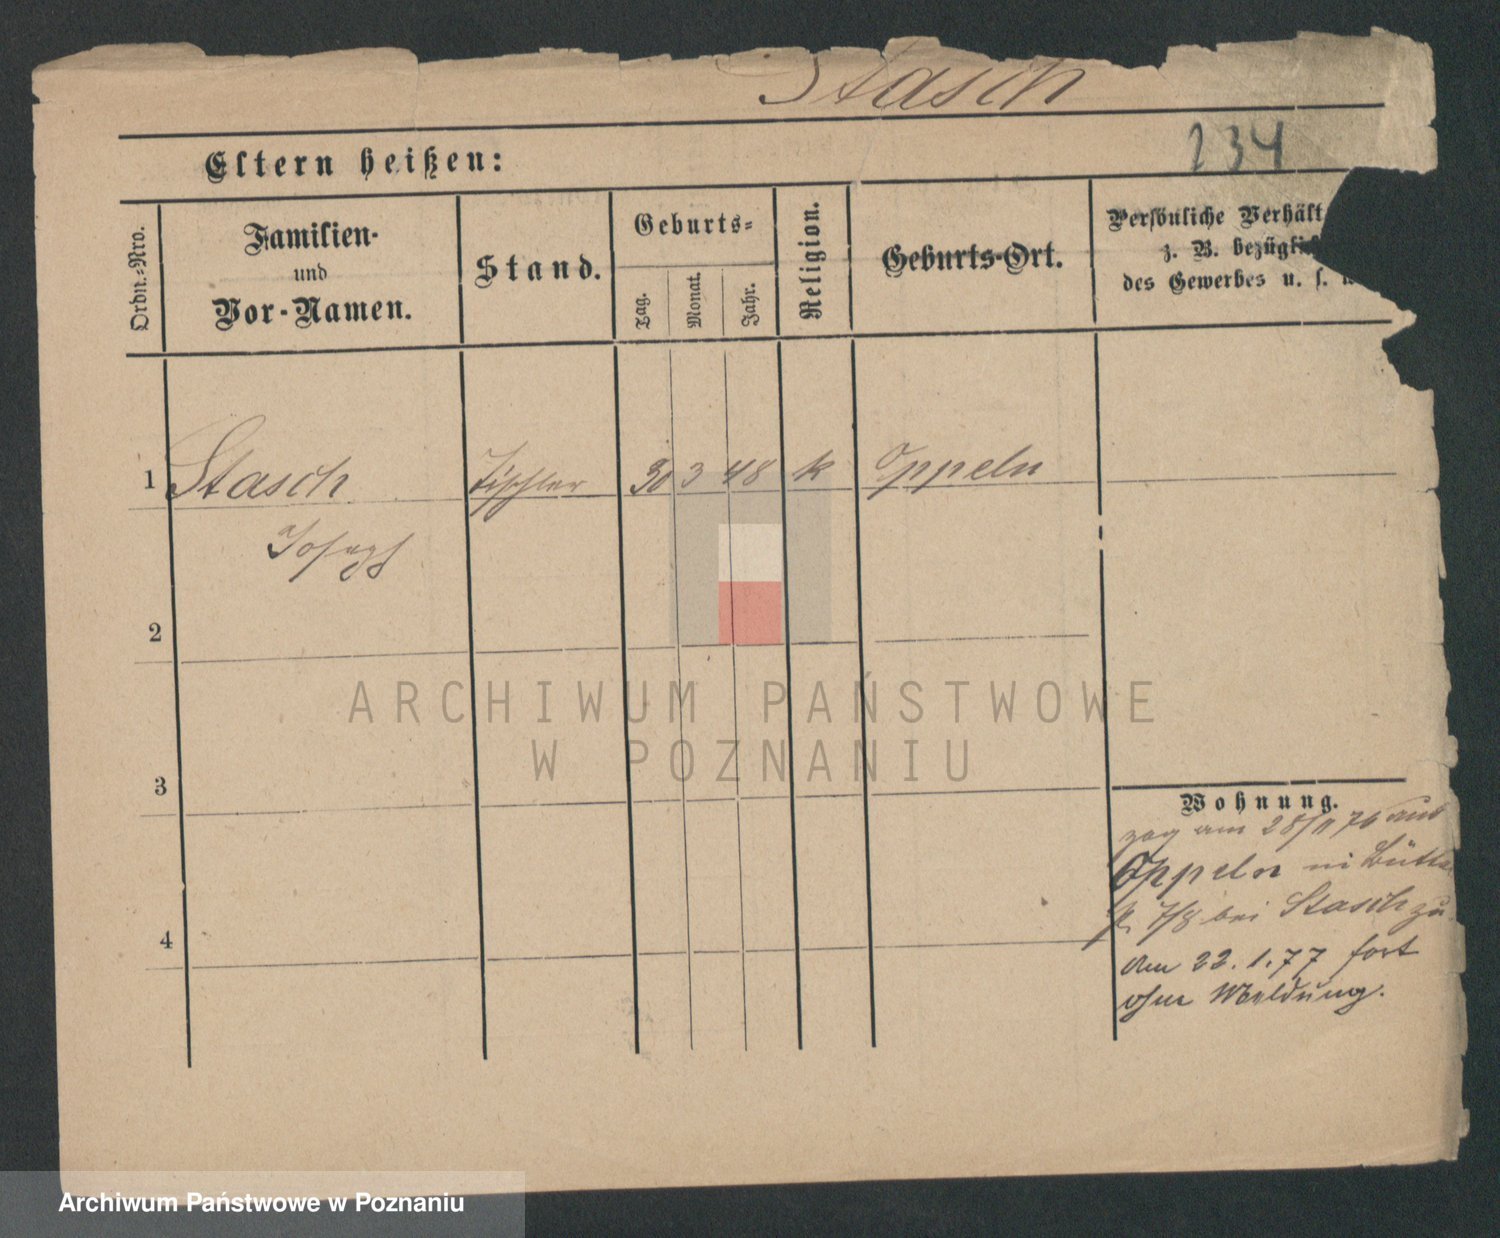 Stasch
234
Eltern heißen:
Ordn.-Nro.
Familien-
und
Vor-Namen.
Stand.
Geburts-
Tag.
Monat.
Jahr.
Religion.
Geburts-Ort.
Persönliche Verhält
z. B. bezüglich
des Gewerbes u. s. w
1 Stasch Tischler 30 3 48 k Oppeln
Joseph
2
3
4
Wohnung.
zog am 28/11 76 aus
Oppeln in Büttel
st. 7/8 bei Stasch zu
am 22.1.77 fort
ohne Meldung.
ARCHIWUM PAŃSTWOWE
W POZNANIU
Archiwum Państwowe w Poznaniu